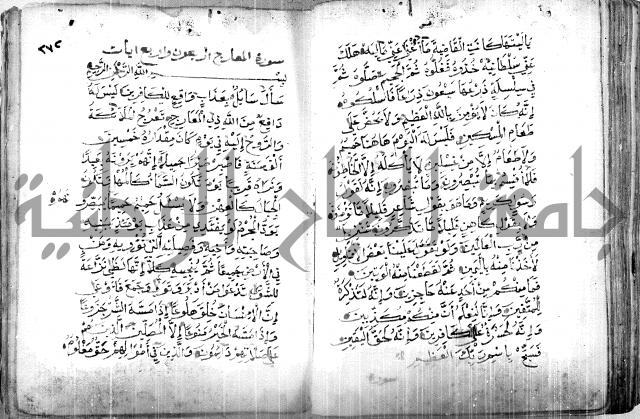 ياليتها كانت القاضية ما اغنى عني ماليه هلك
عني سلطانيه خذوه فغلوه ثم الجحيم صلوه ثم
في سلسلة ذرعها سبعون ذراعا فاسلكوه
انه كان لا يؤمن بالله العظيم ولا يحض على
طعام المسكين فليس له اليوم هاهنا حميم
ولا طعام الا من غسلين لا ياكله الا الخاطئون
فلا اقسم بما تبصرون وما لا تبصرون انه لقول
رسول كريم وما هو بقول شاعر قليلا ما تؤمنون
ولا بقول كاهن قليلا ما تذكرون تنزيل
من رب العالمين ولو تقول علينا بعض الاقاويل
لاخذنا منه باليمين ثم لقطعنا منه الوتين
فما منكم من احد عنه حاجزين وانه لتذكرة
للمتقين وانا لنعلم ان منكم مكذبين
وانه لحسرة على الكافرين وانه لحق اليقين
فسبح باسم ربك العظيم
سورة
٢٧٢
سورة المعارج اربعون واربع ايات
بسم الله الرحمن الرحيم
سأل سائل بعذاب واقع للكافرين ليس له
دافع من الله ذي المعارج تعرج الملائكة
والروح اليه في يوم كان مقداره خمسين
الف سنة فاصبر صبرا جميلا انهم يرونه بعيدا
ونراه قريبا يوم تكون السماء كالمهل وتكون
الجبال كالعهن ولا يسئل حميم حميما يبصرونهم
يود المجرم لو يفتدي من عذاب يومئذ ببنيه
وصاحبته واخيه وفصيلته التي تؤويه ومن
في الارض جميعا ثم ينجيه كلا انها لظى نزاعة
للشوى تدعو من ادبر وتولى وجمع فاوعى
ان الانسان خلق هلوعا اذا مسه الشر جزوعا
واذا مسه الخير منوعا الا المصلين الذين هم
على صلاتهم دائمون والذين في اموالهم حق معلوم
جامعة النجاح الوطنية